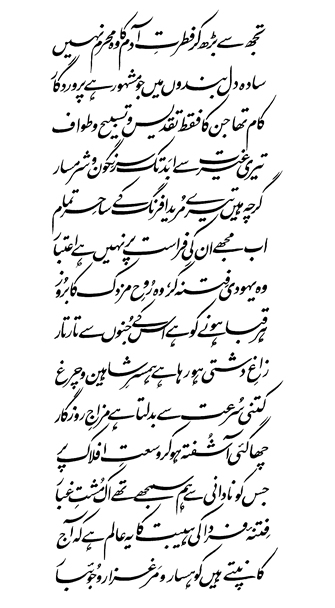 تجھ سے بڑھ کر فطرتِ آدم کا وہ محرم نہیں
سادہ دل بندوں میں جو مشہور ہے پروردگار
کام تھا جن کا فقط تقدیس و تسبیح و طواف
تیری غیرت سے ابد تک سرنگون و شرمسار
گرچہ ہیں تیرے مرید افرنگ کے ساحر تمام
اب مجھے ان کی فراست پر نہیں ہے اعتبار
وہ یہودی فتنہ گر، وہ روحِ مزدک کا بروز
ہر قبا ہونے کو ہے اس کے جنوں سے تار تار
زاغِ دشتی ہو رہا ہے ہمسرِ شاہین و چرغ
کتنی سرعت سے بدلتا ہے مزاجِ روزگار
چھا گئی آشفتہ ہو کر وسعتِ افلاک پر
جس کو نادانی سے ہم سمجھے تھے اک مشتِ غبار
فتنۂ فردا کی ہیبت کا یہ عالم ہے کہ آج
کانپتے ہیں کوہسار و مرغزار و جوئبار